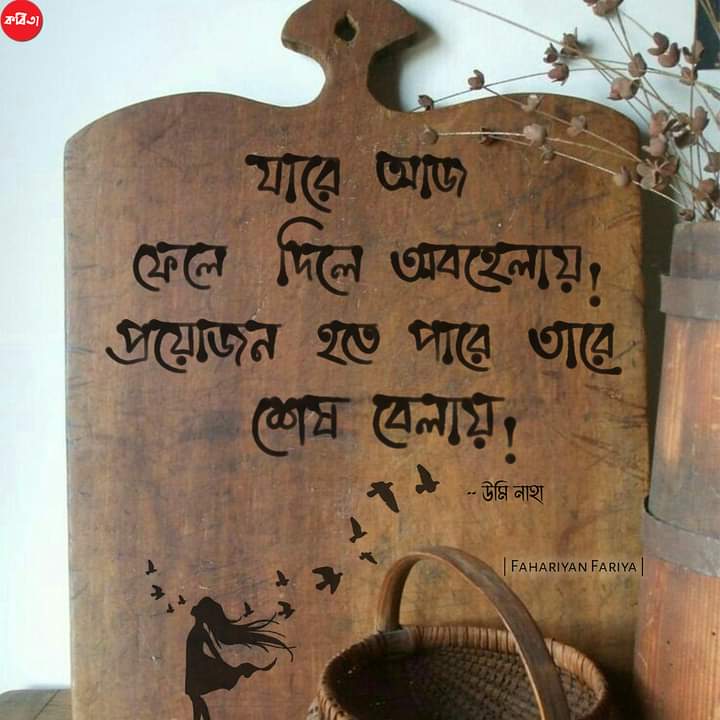 কবিতা
যারে আজ
ফেলে দিলে অবহেলায়,
প্রয়োজন হতে পারে তারে
শেষ বেলায়,
-- উর্মি নাহা
| FAHARIYAN FARIYA |